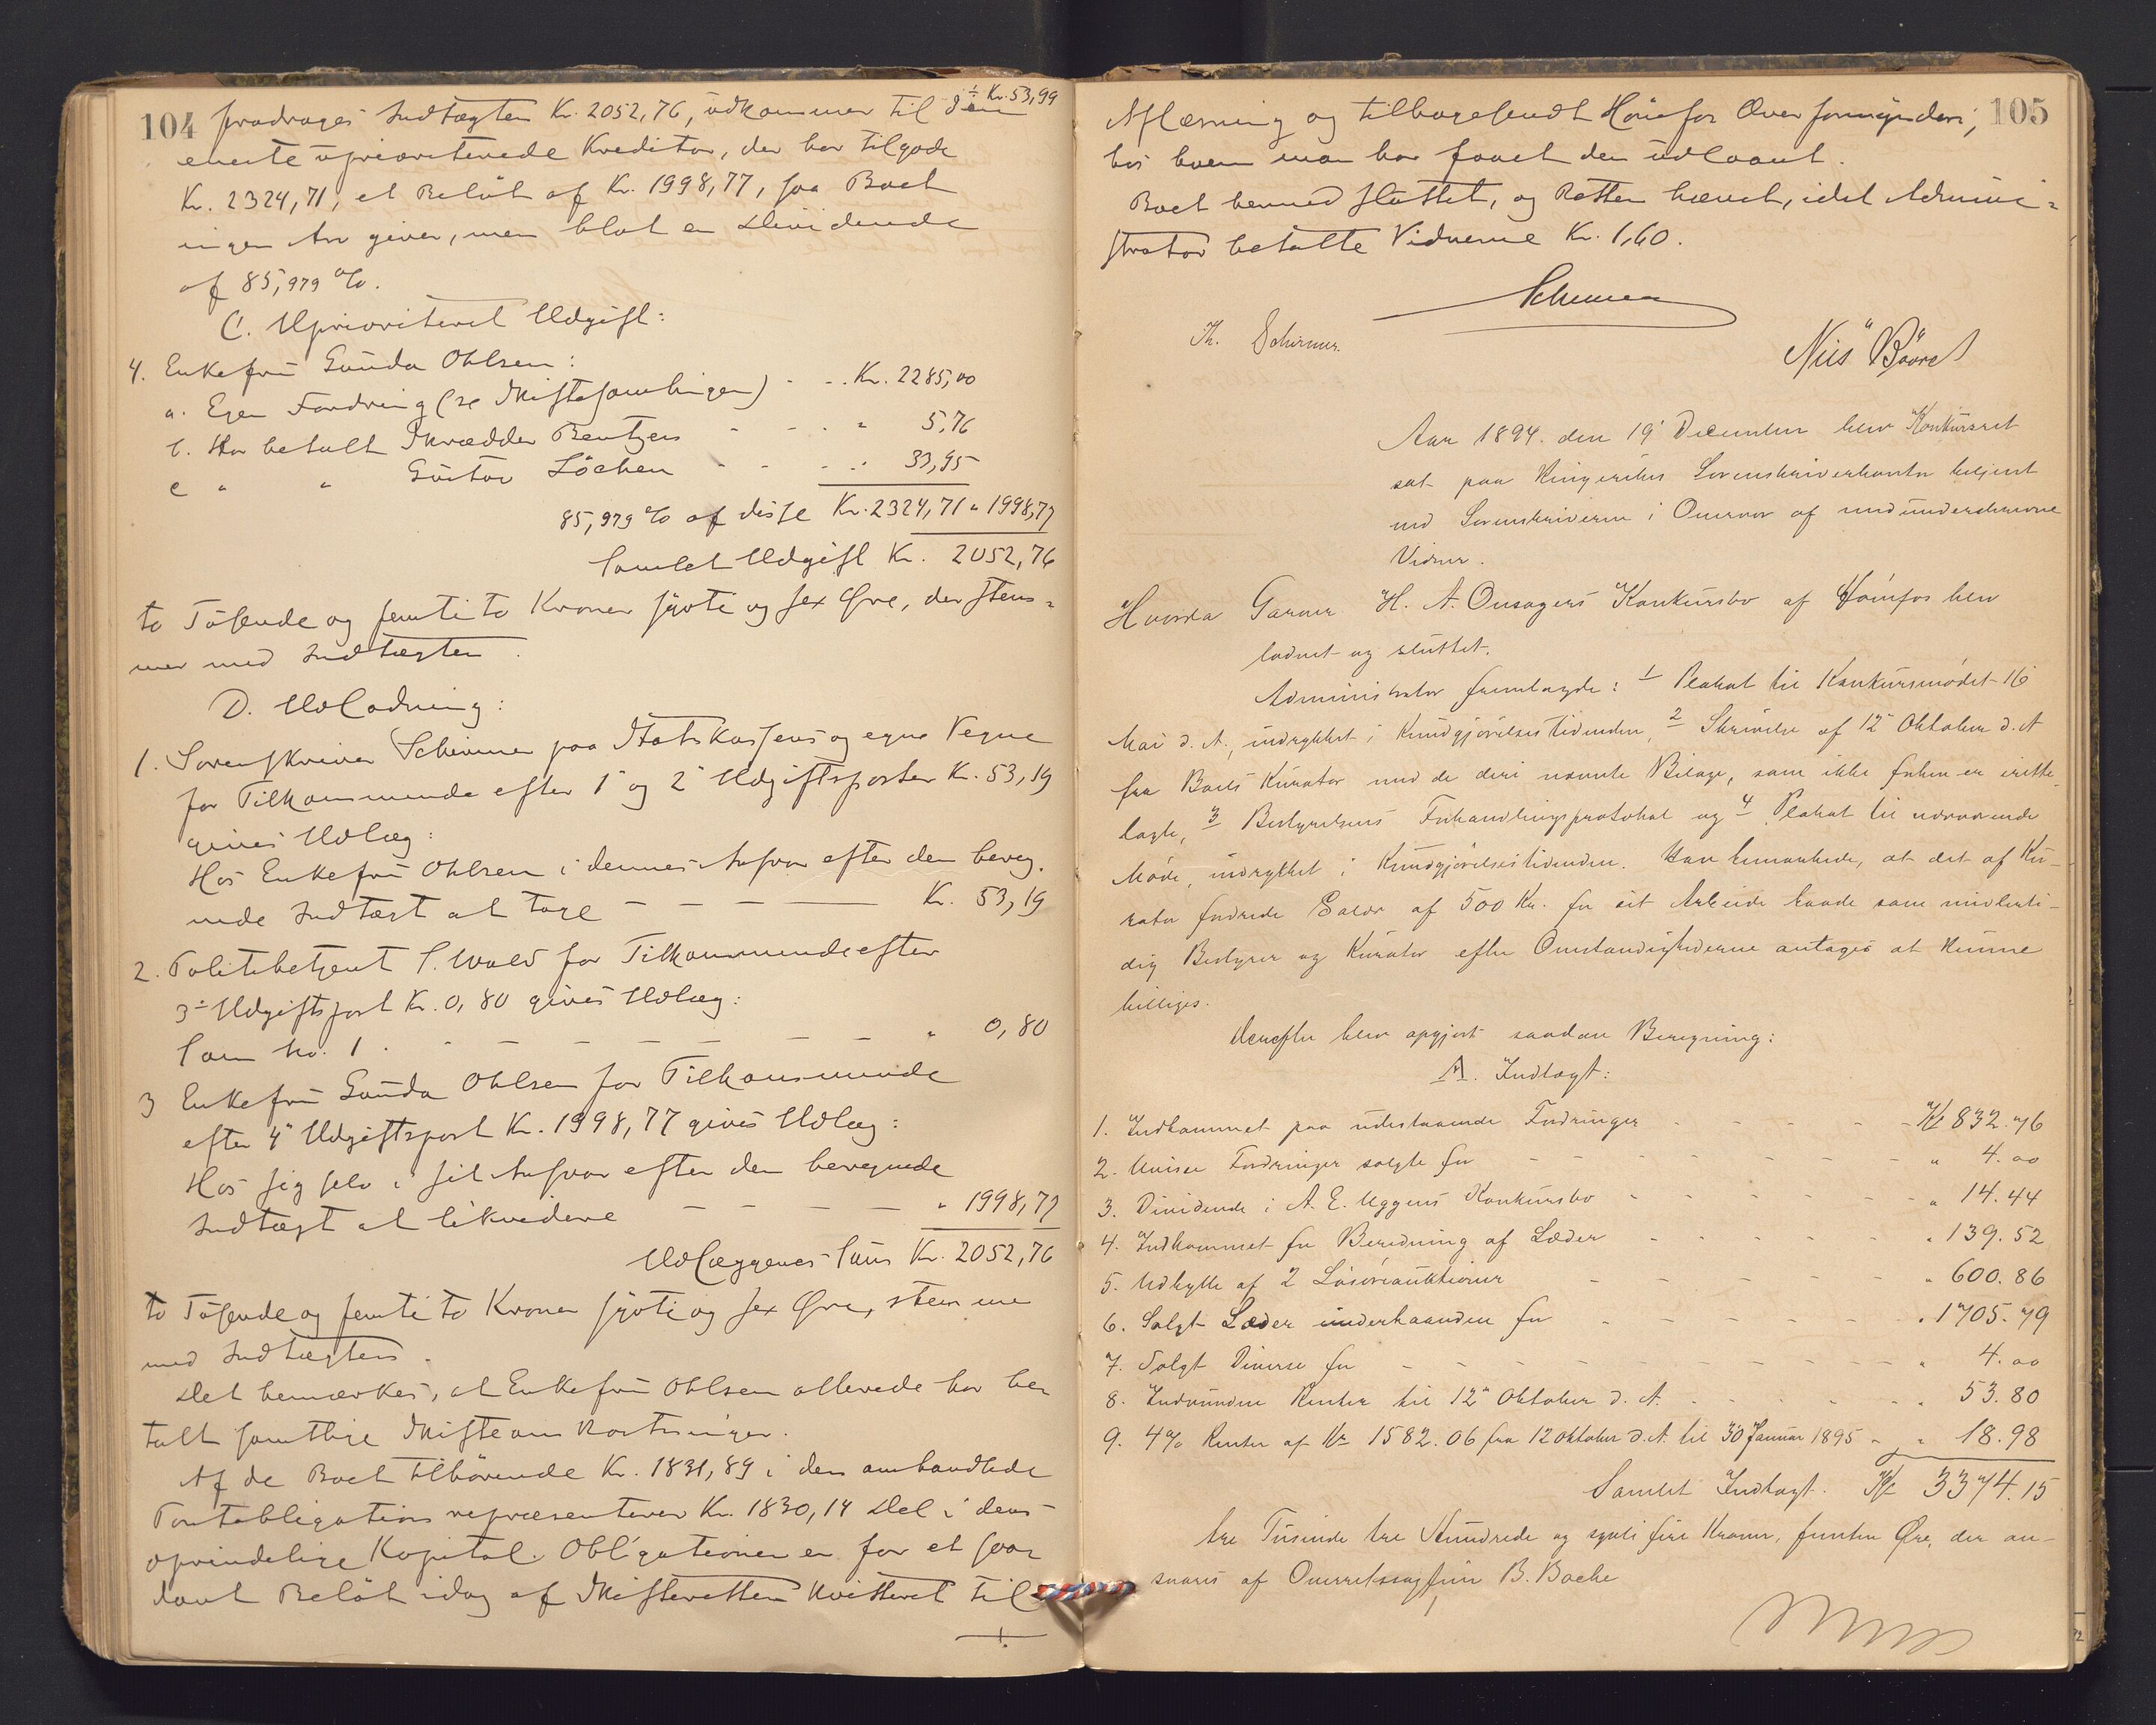 104
÷ Kr. 53,99
fradrages Indtægten Kr. 2052,76, udkommer til den
eneste uprioriterede Kreditor, der har tilgode
Kr. 2324,71, et Beløb af Kr. 1998,77, saa Boet
ingen Arv giver, men blot en Dividende
af 85,979 %.
C. Uprioriteret Udgift:
4. Enkefru Gunda Ohlsen:
a. Egen Fordring (se Skiftesamlingen) - - Kr. 2285,00
b. Har betalt Skrædder Bentzen - - - " 5,76
c " " Gustav Löchen - - - " 33,95
85,979 % af disse Kr. 2324,71 " 1998,77
Samlet Udgift Kr. 2052,76
to Tusende og femti to Kroner sytti og sex Øre, der stem-
mer med Indtægten.
D. Udlodning:
1. Sorenskriver Schirmer paa Statskassens og egne Vegne
for Tilkommende efter 1ˢ og 2ˢ Udgiftsposter Kr. 53,19
gives Udlæg:
Hos Enkefru Ohlsen i dennes Ansvar efter den bereg-
nede Indtægt at tage - - - Kr. 53,19
2. Politibetjent S. Wold for Tilkommende efter
3ᵈ Udgiftspost Kr. 0,80 gives Udlæg:
Som No. 1. - - - - - " 0,80
3 Enkefru Gunda Ohlsen for Tilkommende
efter 4ᵈ Udgiftspost Kr. 1998,77 gives Udlæg:
Hos sig selv i sit Ansvar efter den beregnede
Indtægt at likvidere - - - - " 1998,77
Udlæggenes Sum Kr. 2052,76
to Tusende og femti to Kroner sytti og sex Øre, stemme
med Indtægten.
Det bemærkes, at Enkefru Ohlsen allerede har be-
talt samtlige Skifteomkostninger.
Af de Boet tilhörende Kr. 1831,89 i den omhandlede
Pantobligation repræsenterer Kr. 1830,14 Del i dens
oprindelige Kapital. Obligationen er for et saa-
dant Beløb idag af Skifteretten kvitteret til
105
Aflæsning og tilbagesendt Hönefos Overformynderi,
hos hvem man har faaet den udlaant.
Boet hermed sluttet, og Retten hævet, idet Admini-
strator betalte Vidnerne Kr. 1,60.
Schirmer
Th. Schirmer.
Nils Bööre
Aar 1894 den 19ᵈ December blev Konkursret
sat paa Ringerikes Sorenskriverkontor betjent
ved Sorenskriveren i Overvær af medunderskrevne
Vidner.
Hvorda Garver H. A. Onsagers Konkursbo af Hönefos blev
lodnet og sluttet.
Administrator fremlagde: 1 Plakat til Konkursmödet 16
Mai d. A., indrykket i Kundgjörelsestidenden, 2 Skrivelse af 12ᵗᵉ Oktober d. A
fra Boets Kurator med de deri nævnte Bilage, som ikke forhen er irette-
lagte, 3 Bestyrelsens Forhandlingsprotokol og 4 Plakat til nærværende
Möde, indrykket i Kundgjörelsestidenden. Han bemærkede, at det af Ku-
rator fordrede Salær af 500 Kr. for sit Arbeide baade som midlerti-
dig Bestyrer og Kurator efter Omstændighederne antages at kunne
billiges.
Derefter blev opgjort saadan Beregning:
A. Indtægt:
1. Indkommet paa udestaaende Fordringer - - - Kr 832.76
2. Uvisse Fordringer solgte for - - - " 4.00
3. Dividende i A. E. Uggens Konkursbo - - - " 14.44
4. Indkommet for Beredning af Læder - - - " 139.52
5. Udbytte af 2 Lösöreauktioner - - - " 600.86
6. Solgt Læder underhaanden for - - - " 1705.79
7. Solgt Diverse for - - - " 4.00
8. Indvundne Renter til 12ᵗᵉ Oktober d. A. - - - " 53.80
9. 4% Renter af Kr 1582.06 fra 12 Oktober d. A. til 30 Januar 1895 - " 18.98
Samlet Indtægt. Kr 3374.15
tre Tusinde tre Hundrede og sytti fire Kroner, femten Øre, der an-
svares af Overretssagförer B. Bache